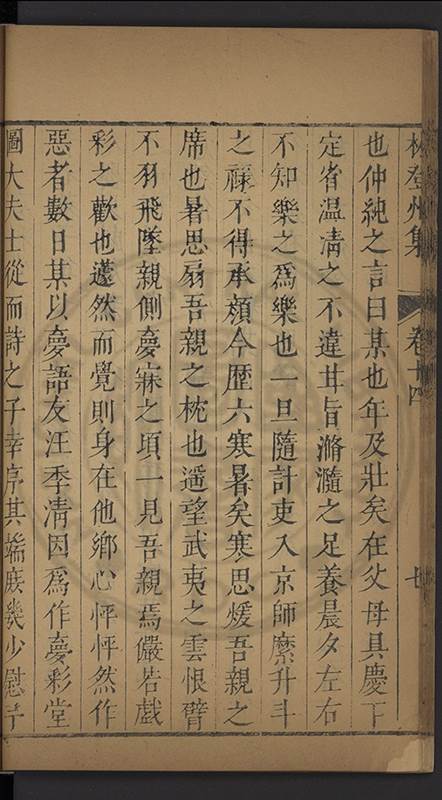 林登州集 卷十四 七
也仲純之言曰某也年及壯矣在父母具慶下
定省溫凊之不違甘旨滫瀡之足養晨夕左右
不知樂之爲樂也一旦隨計吏入京師縻升斗
之祿不得承顔今歴六寒暑矣寒思煖吾親之
席也暑思扇吾親之枕也遥望武夷之雲恨臂
不羽飛墜親側夢寐之頃一見吾親焉儼若戯
彩之歡也蘧然而覺則身在他鄉心怦怦然作
惡者數日某以夢語友汪季清因爲作夢彩堂
圖大夫士從而詩之子幸序其端庶幾少慰乎